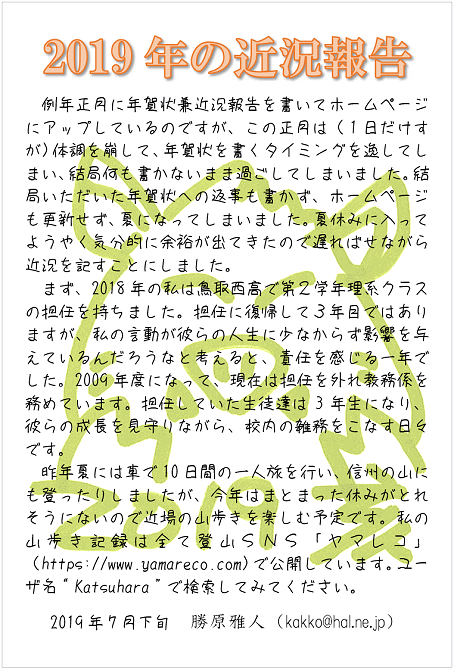 2019年の近況報告
例年正月に年賀状兼近況報告を書いてホームページ
にアップしているのですが、この正月は(1日だけす
が)体調を崩して、年賀状を書くタイミングを逸してし
まい、結局何も書かないまま過ごしてしまいました。結
局いただいた年賀状への返事も書かず、ホームページ
も更新せず、夏になってしまいました。夏休みに入って
ようやく気分的に余裕が出てきたので遅ればせながら
近況を記すことにしました。
まず、2018年の私は鳥取西高で第2学年理系クラス
の担任を持ちました。担任に復帰して3年目ではあり
ますが、私の言動が彼らの人生に少なからず影響を与
えているんだろうなと考えると、責任を感じる一年で
した。2009年度になって、現在は担任を外れ教務係を
務めています。担任していた生徒達は3年生になり、
彼らの成長を見守りながら、校内の雑務をこなす日々
です。
昨年夏には車で10日間の一人旅を行い、信州の山に
も登ったりしましたが、今年はまとまった休みがとれ
そうにないので近場の山歩きを楽しむ予定です。私の
山歩き記録は全て登山SNS「ヤマレコ」
(https://www.yamareco.com)で公開しています。ユー
ザ名“Katsuhara”で検索してみてください。
2019年7月下旬 勝原雅人(kakko@hal.ne.jp)
2019 亥